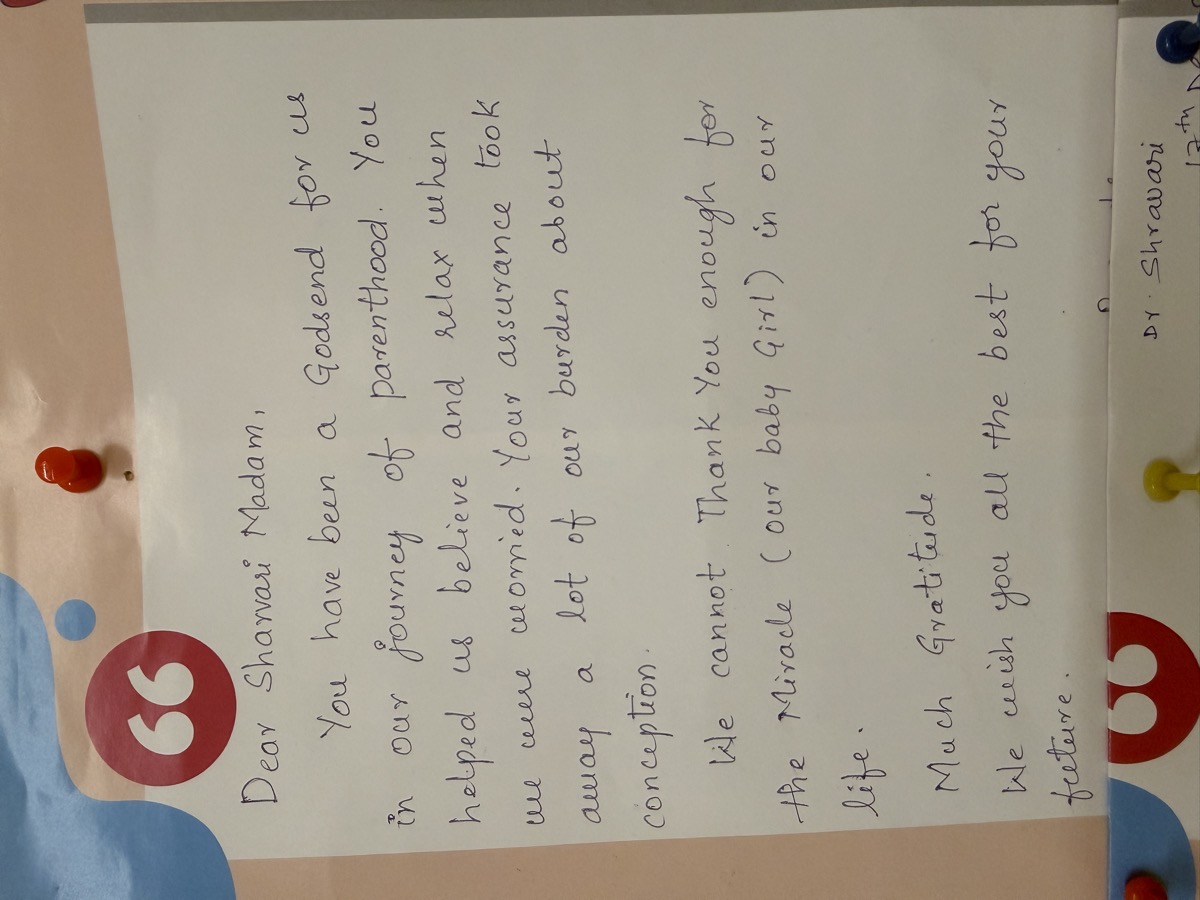 Dear Sharvari Madam,
You have been a Godsend for us
in our journey of parenthood. You
helped us believe and relax when
we were worried. Your assurance took
away a lot of our burden about
conception.
We cannot Thank You enough for
the Miracle (our baby Girl) in our
life.
Much Gratitude.
We wish you all the best for your
future.
Dr. Shravari
17th